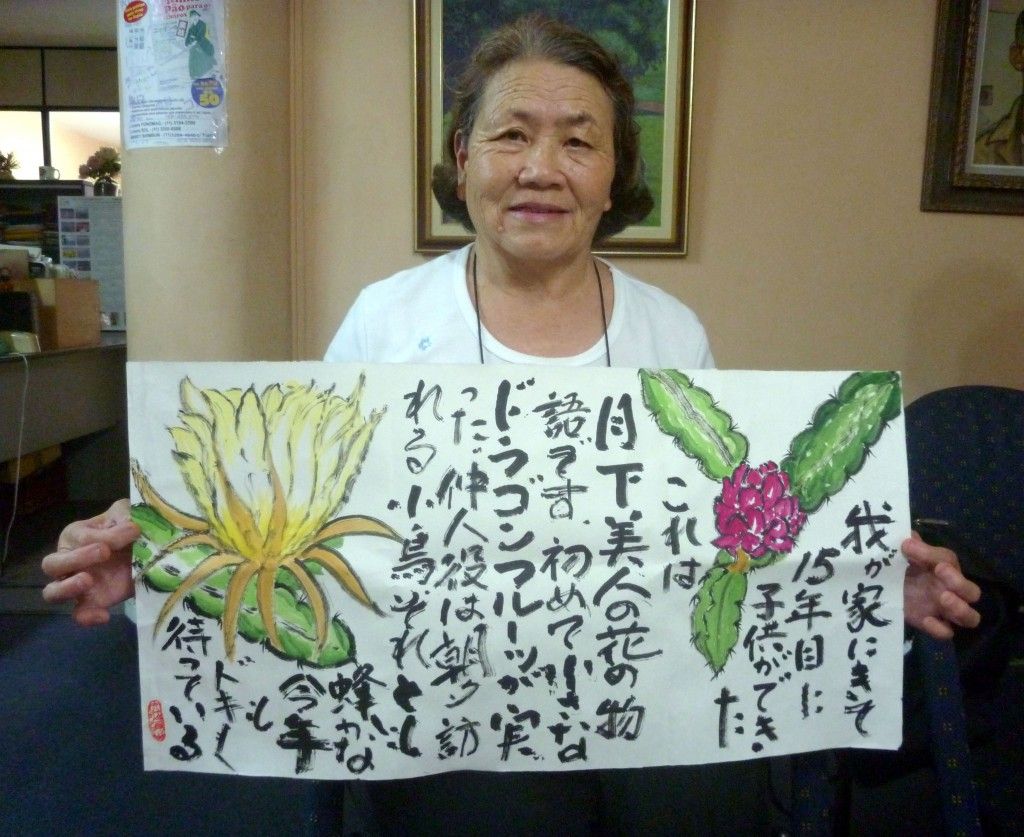 我が家にきて
15年目に
子供ができ
た
これは
月下美人の花の物
語です、初めて小さな
ドラゴンフルーツが実
った仲人役は朝夕訪
れる小鳥それとも
蜂かな
今年
も
ドキ〱
待っている
Pão para
50